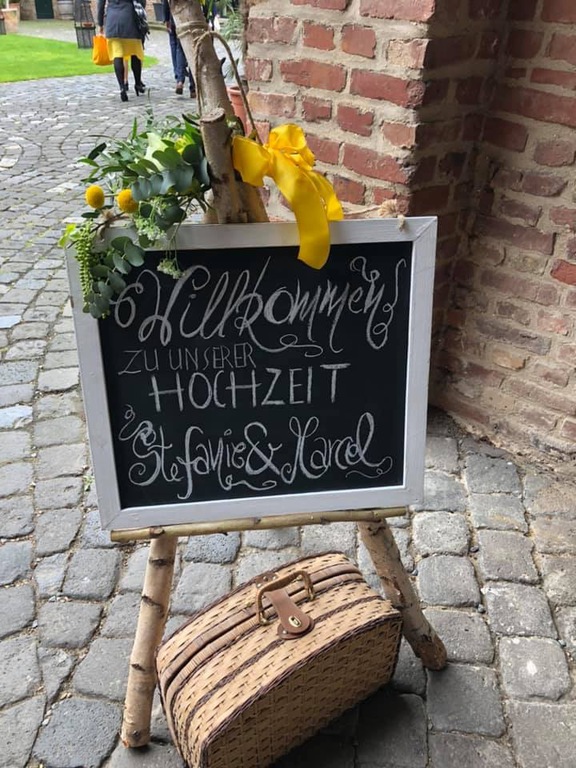 Willkommen
ZU UNSERER
HOCHZEIT
Stefanie & Marcel